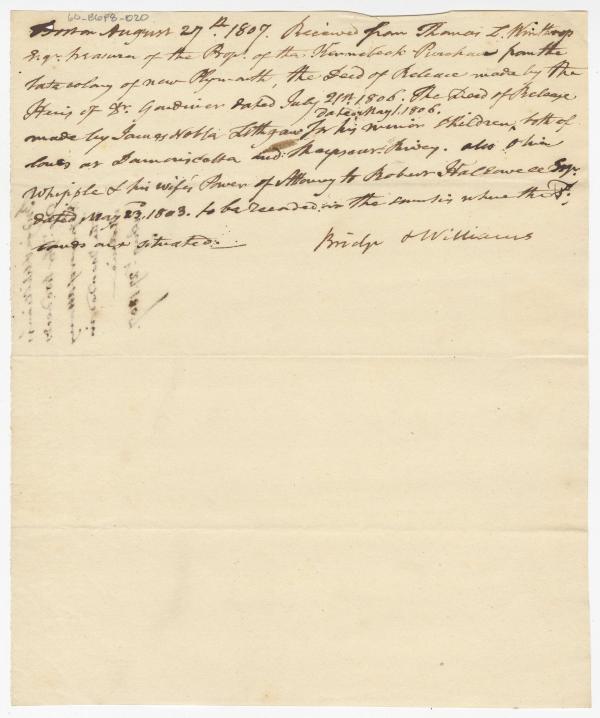 60-B6F8-020
Boston August 27th. 1807. Received from Thomas L. Winthrop
Esqr. treasurer of the Propr. of the Kennebeck Purchase from the
late colony of new Plymouth, the Deed of Release made by the
Heirs of Dr. Gardiner dated July 21st. 1806. The Deed of Release
Dated May 1. 1806.
made by James Noble Lithgaw for his minor children, both of
lands at Damariscotta and Sheepscut River. also
Whipple & his wife's Power of Attorney to Robert Hallowell Esqr.
dated May 23d. 1803. to be recorded in the counties where the Sd.
lands are situated.
Bridge & Williams